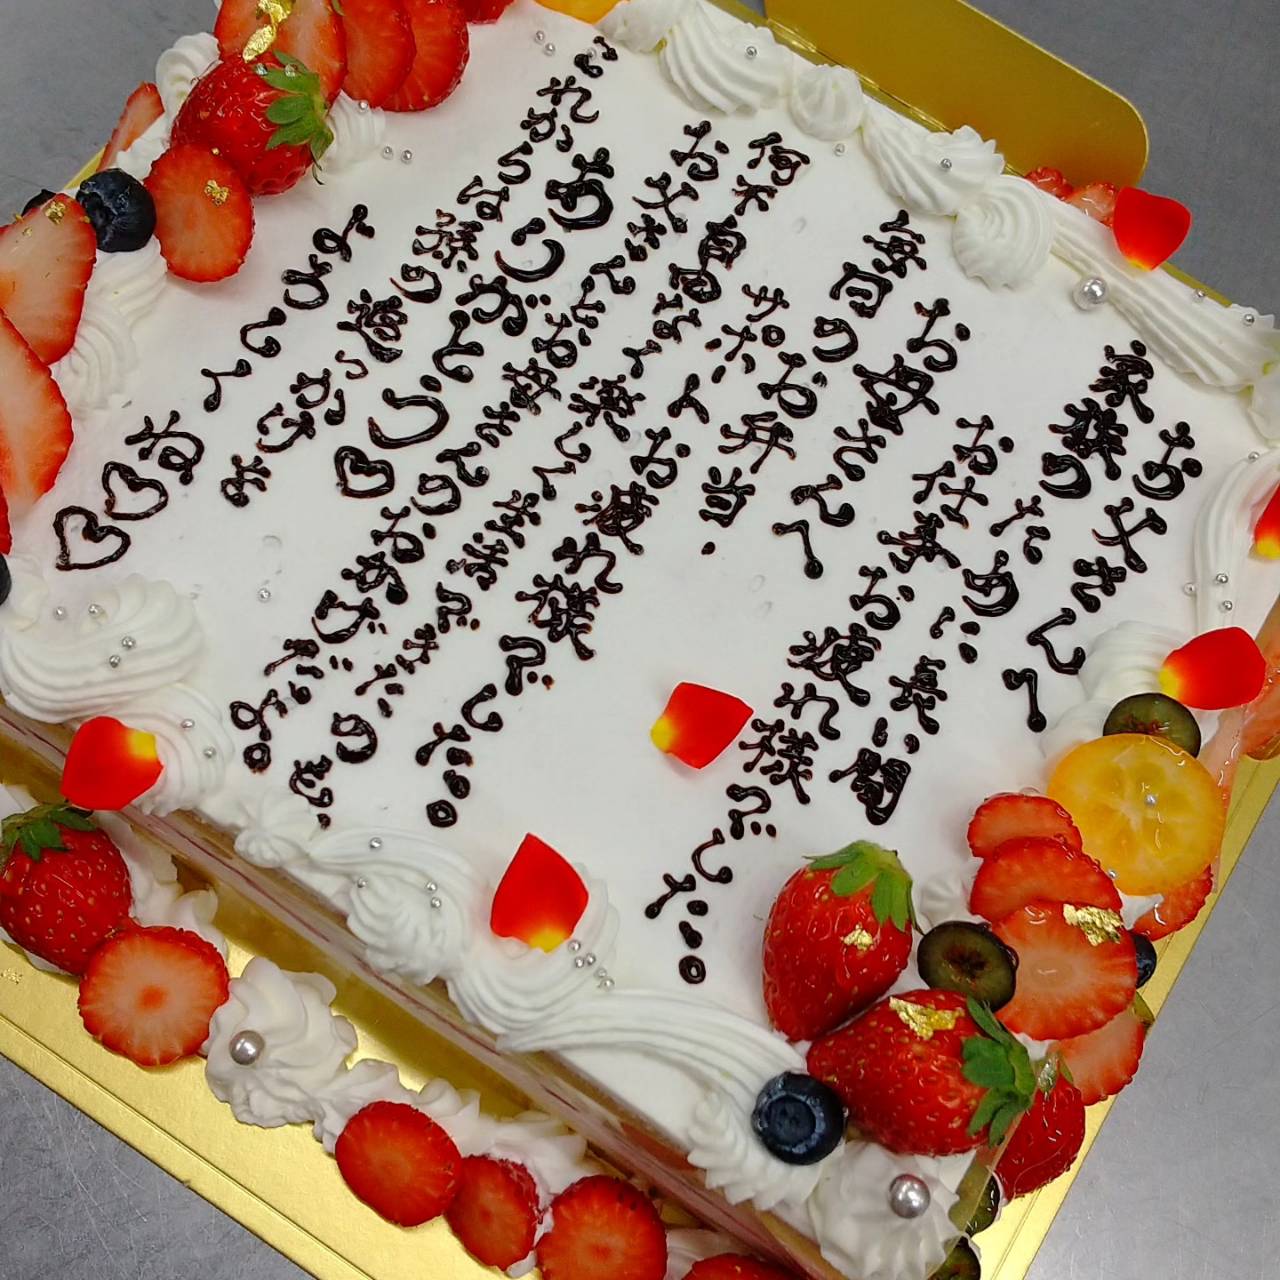 お父さんへ
家族のために長い間
お仕事お疲れ様でした。
お母さんへ
毎日のお弁当・
サポートお疲れ様でした。
何不自由なく楽しく生活できたのも、
お父さんとお母さんのおかげだよ。
ありがとう♡
これからは孫の追っかけも
よろしくね♡♡